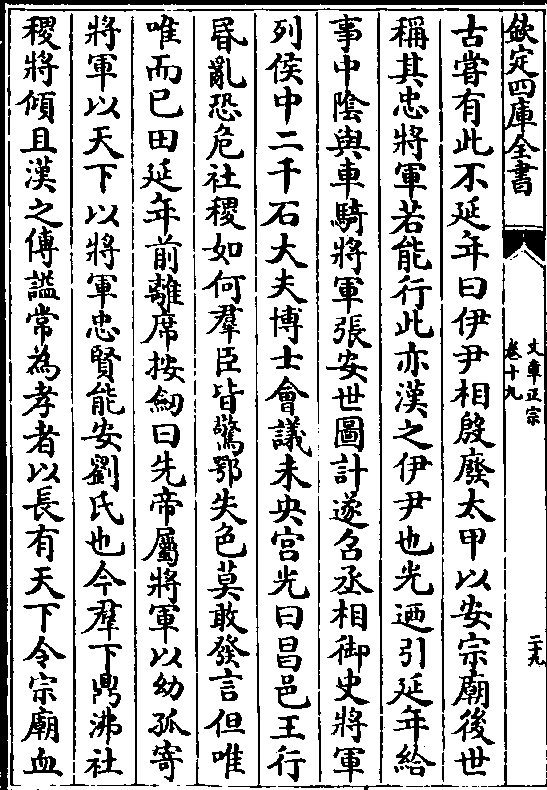 欽定四庫全書
文章正宗
卷十九
二十九
古嘗有此不延年曰伊尹相殷廢太甲以安宗廟後世
稱其忠將軍若能行此亦漢之伊尹也光迺引延年給
事中陰與車騎將軍張安世圖計遂召丞相御史將軍
列侯中二千石大夫博士會議未央宮光曰昌邑王行
昬亂恐危社稷如何羣臣皆驚鄂失色莫敢發言但唯
唯而已田延年前離席按劒曰先帝屬將軍以幼孤寄
將軍以天下以將軍忠賢能安劉氏也今羣下鼎沸社
稷將傾且漢之傳謚常為孝者以長有天下令宗廟血